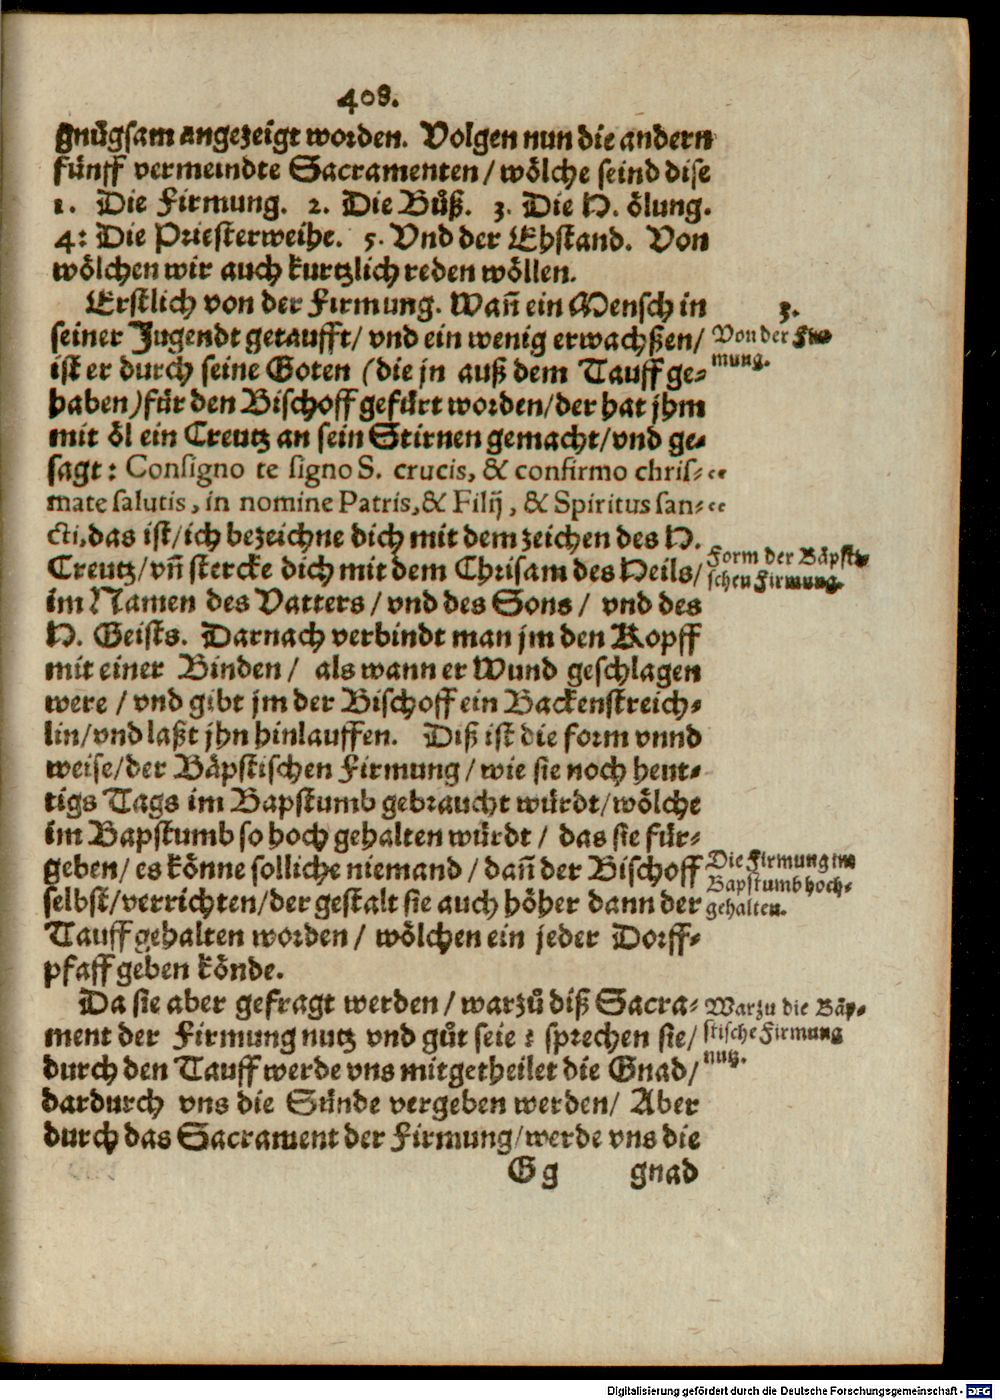 408.
gnůgsam angezeigt worden. Volgen nun die andern
fünff vermeindte Sacramenten / wölche seind dise
1. Die Firmung. 2. Die Bůß. 3. Die H. ölung.
4: Die Priesterweihe. 5. Vnd der Ehstand. Von
wölchen wir auch kurtzlich reden wöllen.
Erstlich von der Firmung. Wañ ein Mensch in
3.
seiner Jugendt getaufft / vnd ein wenig erwachßen /
Von der Fir-
mung.
ist er durch seine Goten (die jn auß dem Tauff ge-
haben) für den Bischoff gefürt worden / der hat jhm
mit öl ein Creutz an sein Stirnen gemacht / vnd ge-
sagt: Consigno te signo S. crucis, & confirmo chris-
mate salutis, in nomine Patris, & Filij, & Spiritus san-
cti, das ist / ich bezeichne dich mit dem zeichen des H.
Creutz / vñ stercke dich mit dem Chrisam des Heils /
Form der Bäpsti-
schen Firmung.
im Namen des Vatters / vnd des Sons / vnd des
H. Geists. Darnach verbindt man jm den Kopff
mit einer Binden / als wann er Wund geschlagen
were / vnd gibt jm der Bischoff ein Backenstreich-
lin / vnd laßt jhn hinlauffen. Diß ist die form vnnd
weise / der Bäpstischen Firmung / wie sie noch heut-
tigs Tags im Bapstumb gebraucht würdt / wölche
im Bapstumb so hoch gehalten würdt / das sie für-
geben / es könne solliche niemand / dañ der Bischoff
Die Firmung im
Bapstumb hoch-
gehalten.
selbst / verrichten / der gestalt sie auch höher dann der
Tauff gehalten worden / wölchen ein jeder Dorff-
pfaff geben könde.
Da sie aber gefragt werden / warzů diß Sacra-
Warzu die Bäp-
stische Firmung
nutz.
ment der Firmung nutz vnd gůt seie : sprechen sie /
durch den Tauff werde vns mitgetheilet die Gnad /
dardurch vns die Sünde vergeben werden / Aber
durch das Sacrament der Firmung / werde vns die
Gg gnad
Digitalisierung gefördert durch die Deutsche Forschungsgemeinschaft - DFG